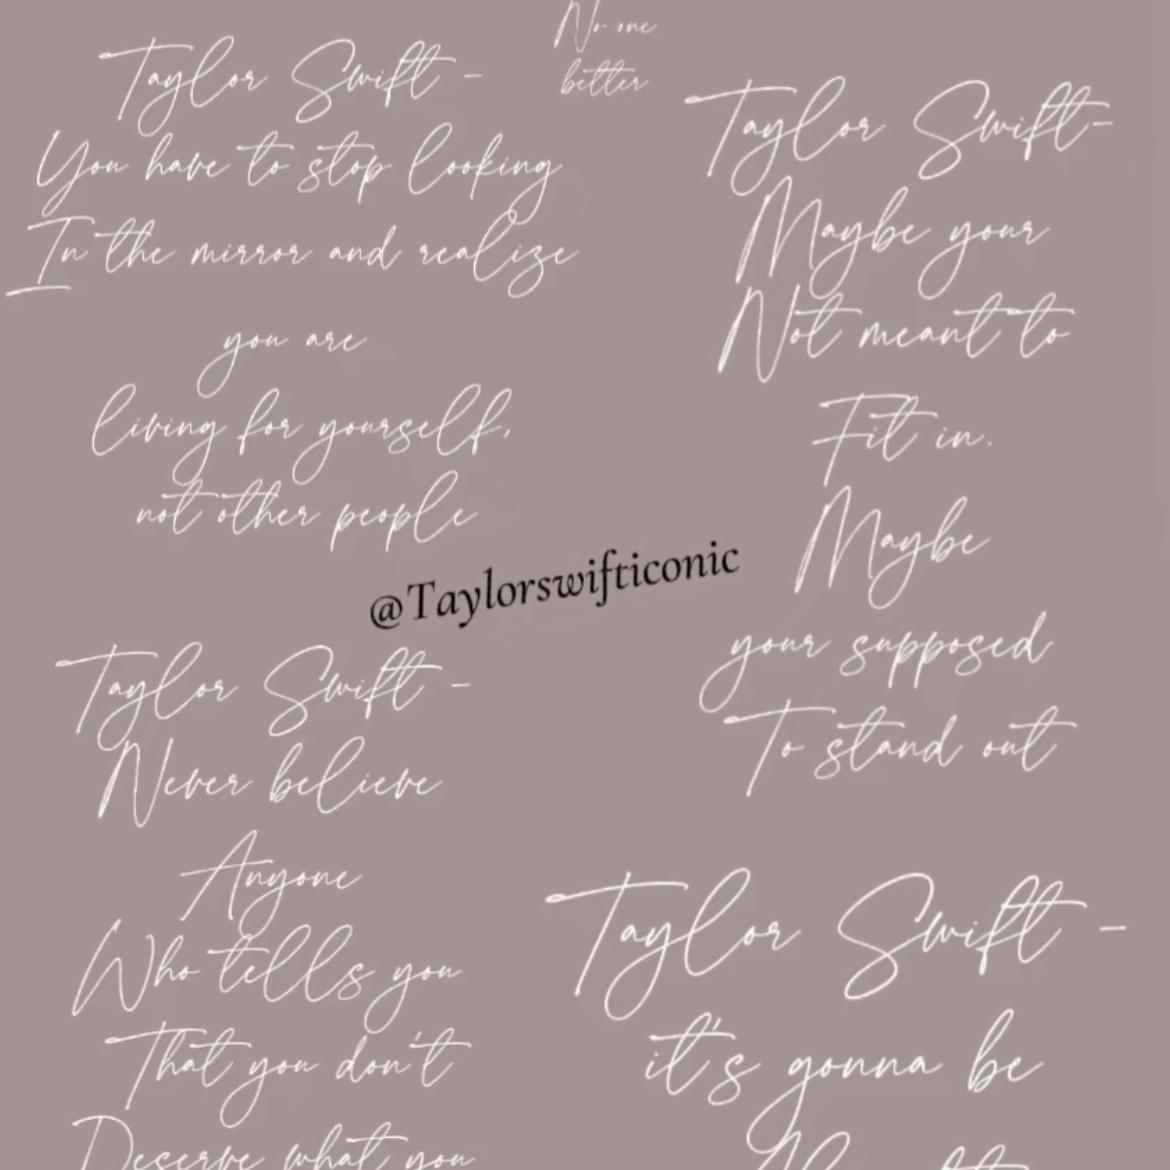 No one
better
Taylor Swift -
You have to stop looking
In the mirror and realize
you are
living for yourself,
not other people
Taylor Swift-
Maybe your
Not meant to
Fit in.
Maybe
your supposed
To stand out
@Taylorswifticonic
Taylor Swift -
Never believe
Anyone
Who tells you
That you don't
Deserve what you
Taylor Swift -
it's gonna be